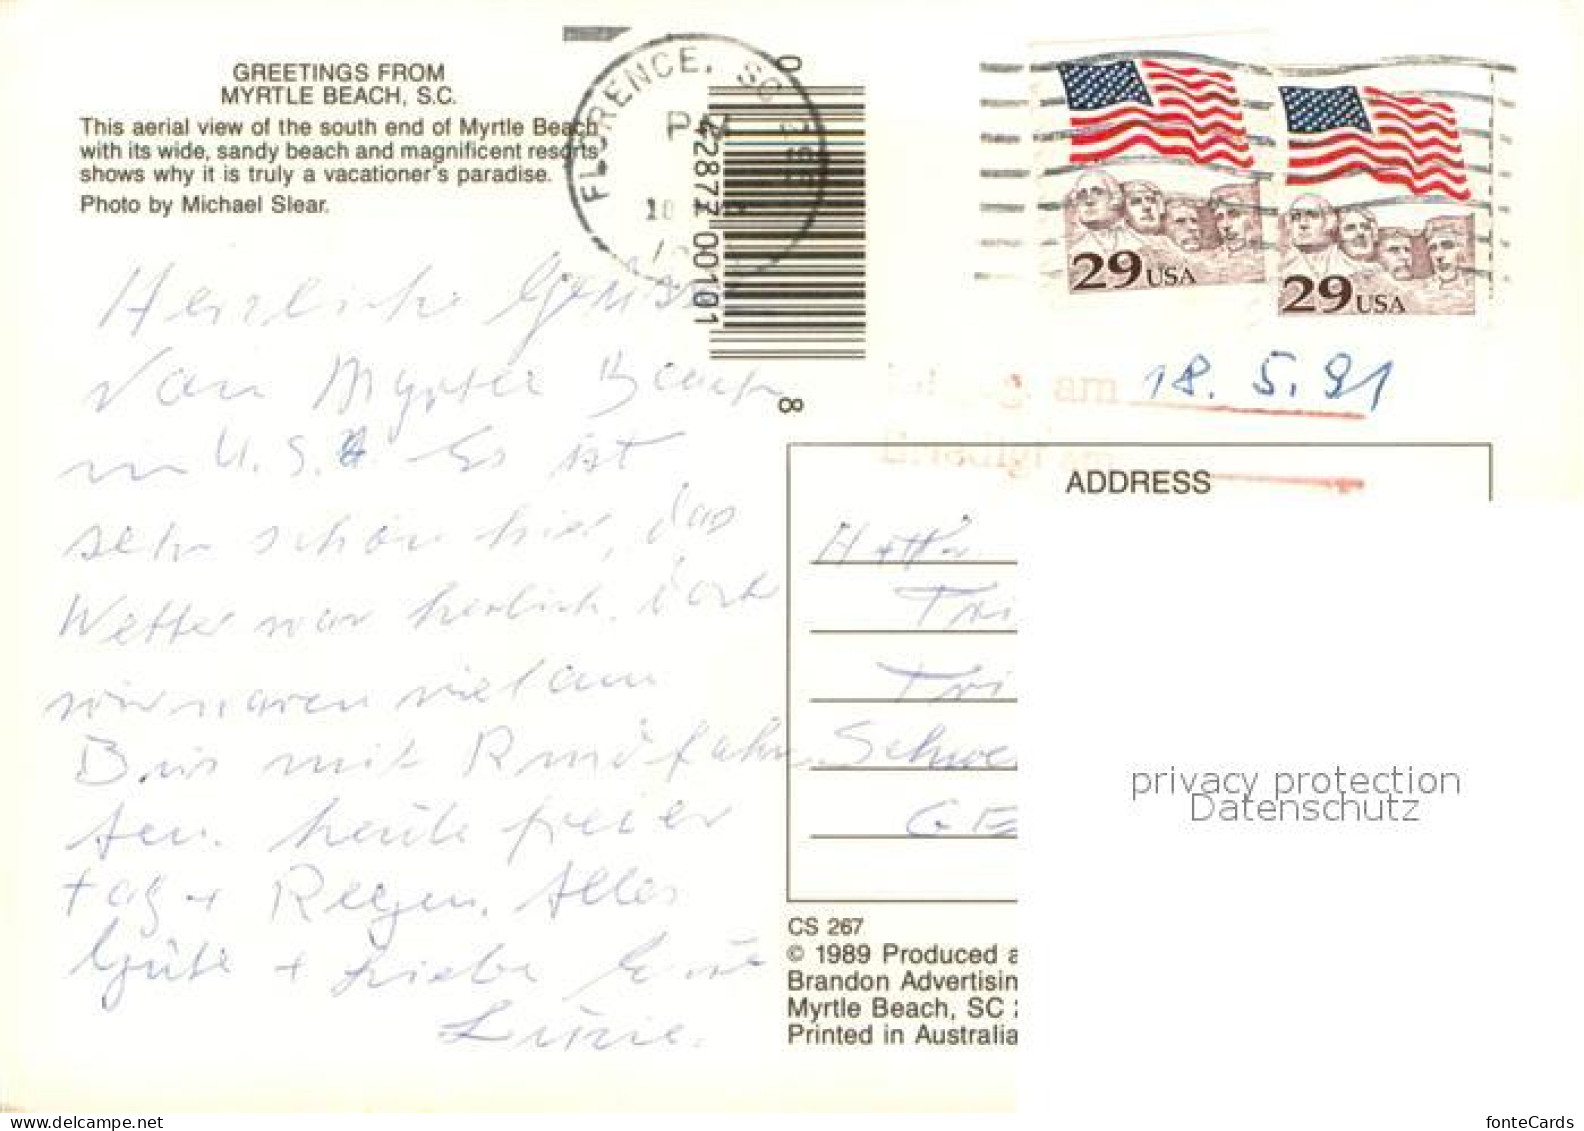 GREETINGS FROM
MYRTLE BEACH, S.C.
This aerial view of the south end of Myrtle Beach
with its wide, sandy beach and magnificent resorts
shows why it is truly a vacationer's paradise.
Photo by Michael Slear.
FLORENCE, SC
PM
0
42877 00101
8
29 USA
29 USA
am 18. 5. 91
Herzliche Grüsse
Van Myrtle Beach
in U.S.A. Es ist
sehr schön hier, das
Wetter war herlich. doch
wir waren viel am
Bus mit Rundfahr
ten. heute freier
tag + Regen. Alles
Gute + Liebe
ADDRESS
Tri
Tri
Schwe
GE
CS 267
© 1989 Produced a
Brandon Advertisin
Myrtle Beach, SC
Printed in Australia
privacy protection
Datenschutz
https://www.delcampe.net
fonteCards